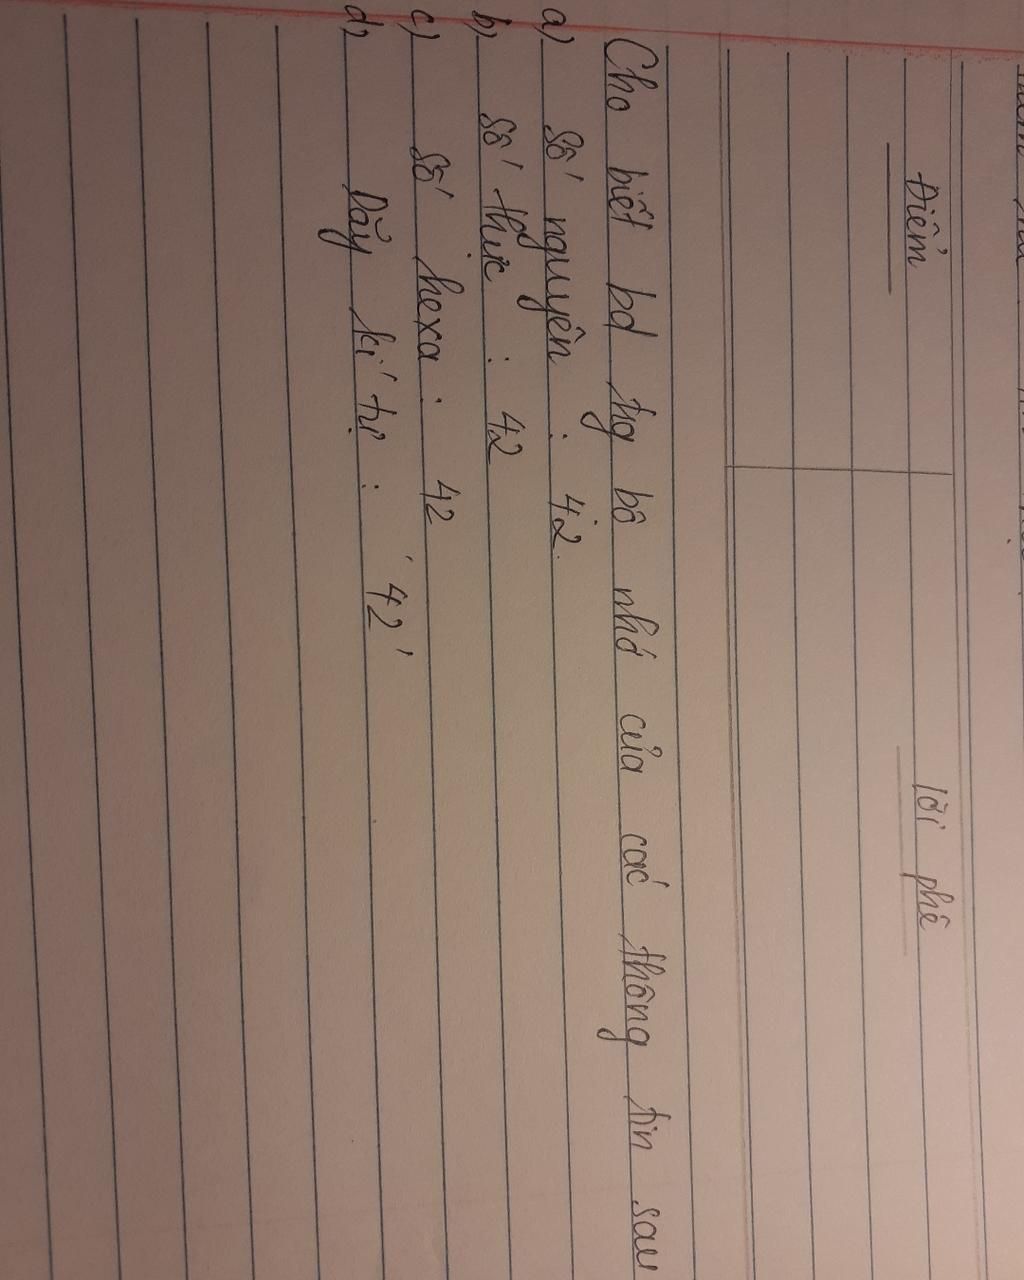 Điểm lời phê
Cho biết bd tg bô nhớ của các thông tin sau
a) số nguyên : 42.
b) số thực : 42
c) số hexa : 42
d) Dãy kí tự : '42'